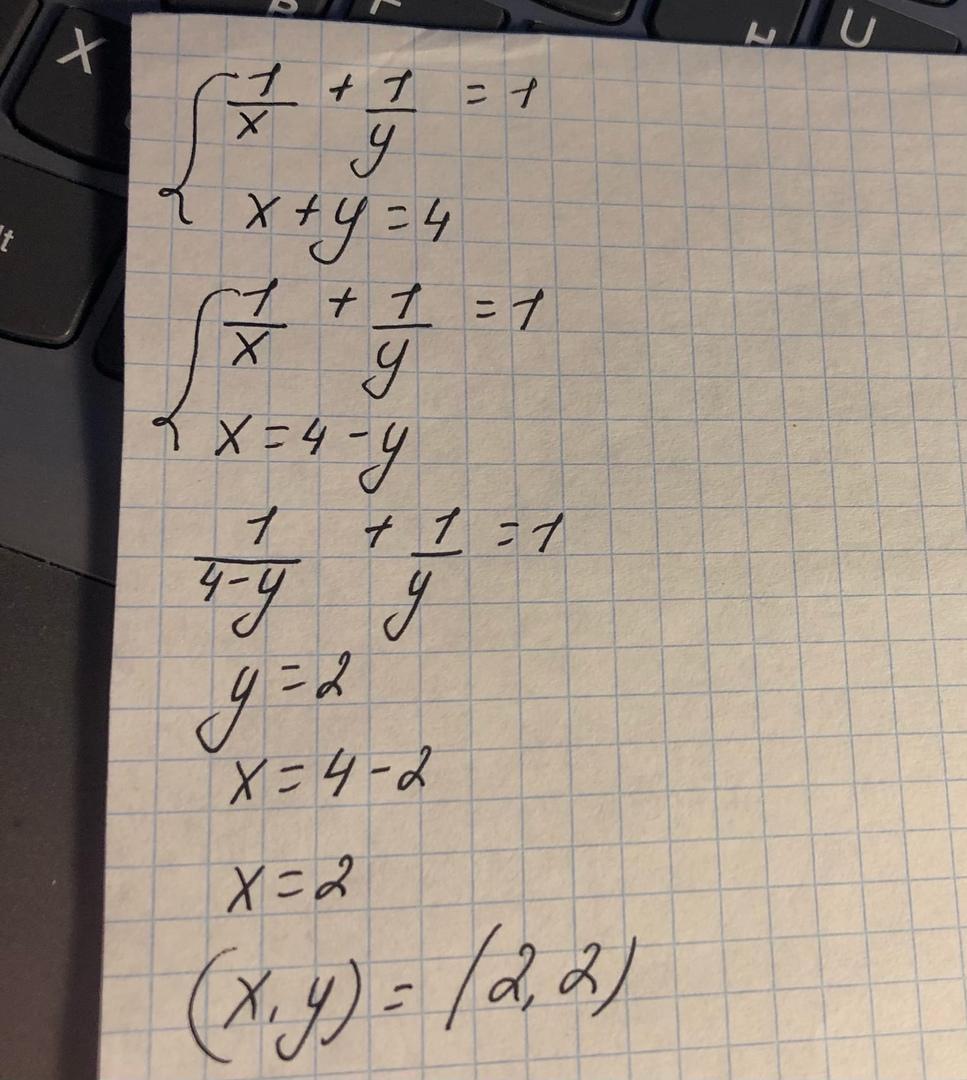 X
U
lt
{ 1/x + 1/y = 1
x + y = 4
{ 1/x + 1/y = 1
x = 4 - y
1/(4-y) + 1/y = 1
y = 2
x = 4 - 2
x = 2
(x, y) = (2, 2)